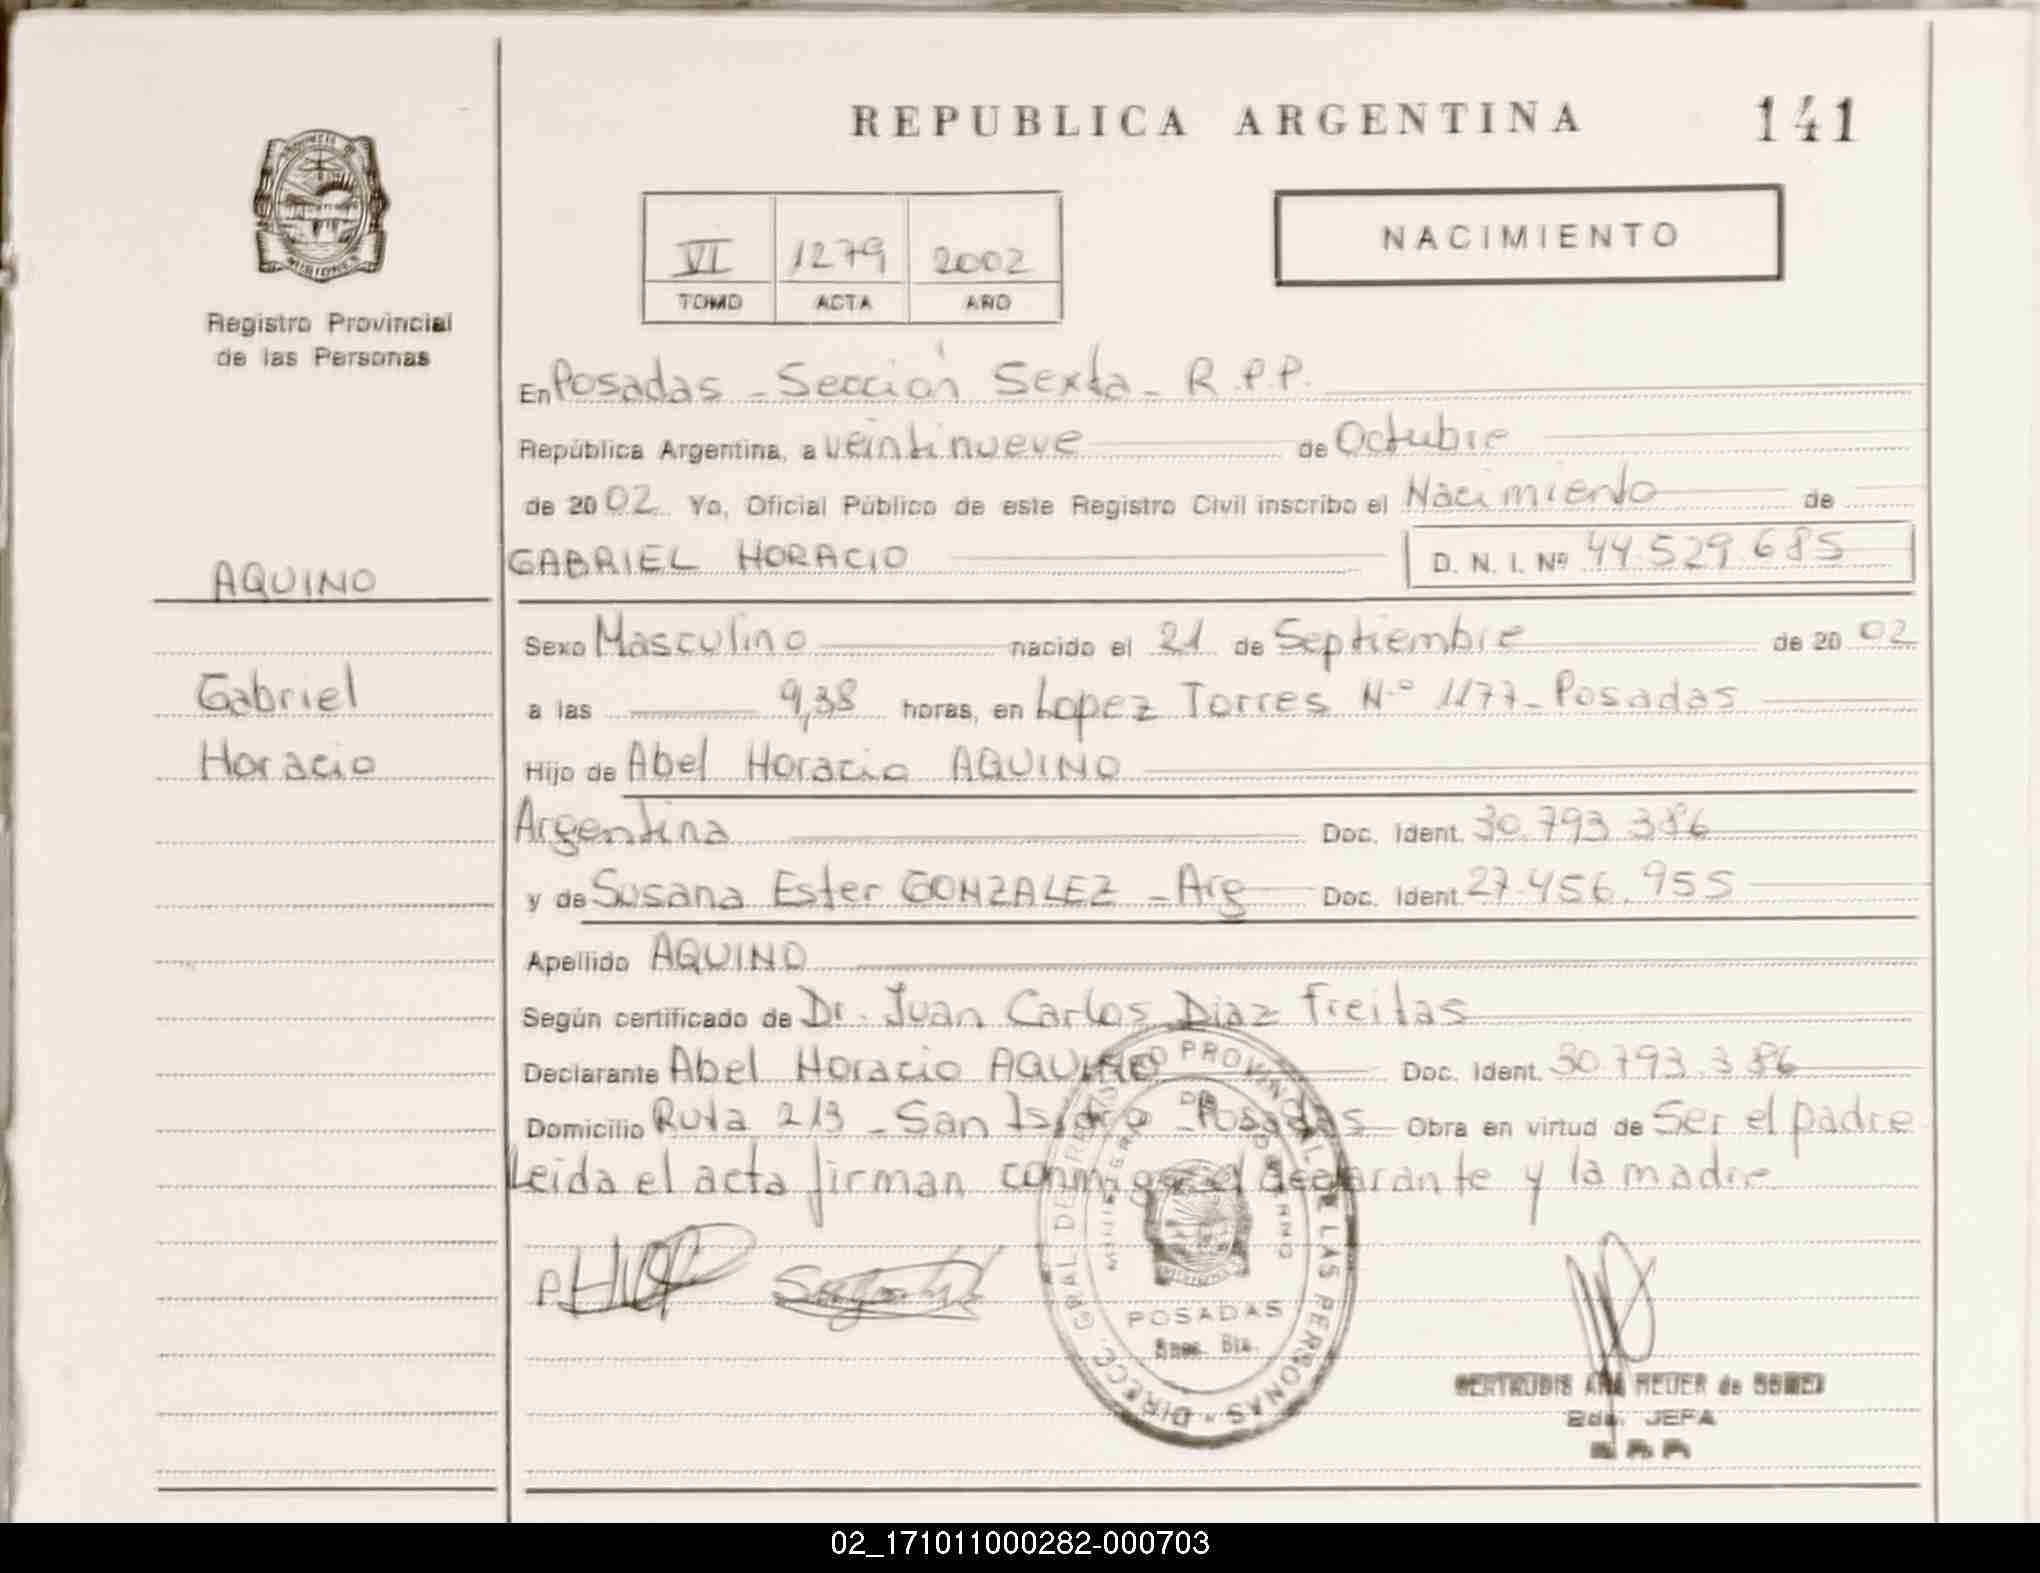 REPUBLICA ARGENTINA
141
NACIMIENTO
VI 1279 2002
TOMO ACTA AÑO
MISIONES
Registro Provincial
de las Personas
En Posadas - Sección Sexta - R.P.P.
República Argentina, a veintinueve de Octubre
de 2002 Yo, Oficial Público de este Registro Civil inscribo el Nacimiento de
GABRIEL HORACIO D. N. I. Nº 44.529.685
AQUINO
Gabriel
Horacio
Sexo Masculino nacido el 21 de Septiembre de 20 02
a las 9,38 horas, en Lopez Torres Nº 1177 - Posadas
Hijo de Abel Horacio AQUINO
Argentina Doc. Ident. 30.793.386
y de Susana Ester GONZALEZ - Arg Doc. Ident. 27.456.955
Apellido AQUINO
Según certificado de Dr. Juan Carlos Diaz Freitas
Declarante Abel Horacio AQUINO Doc. Ident. 30.793.386
Domicilio Ruta 213 - San Isidro - Posadas Obra en virtud de Ser el padre
Leida el acta firman conmigo el declarante y la madre
DIRECC. GRAL DE REGISTRO PROVINCIAL DE LAS PERSONAS
MINISTERIO DE GOBIERNO
MISIONES
POSADAS
GERTRUDIS ANA de
JEFA
02_171011000282-000703